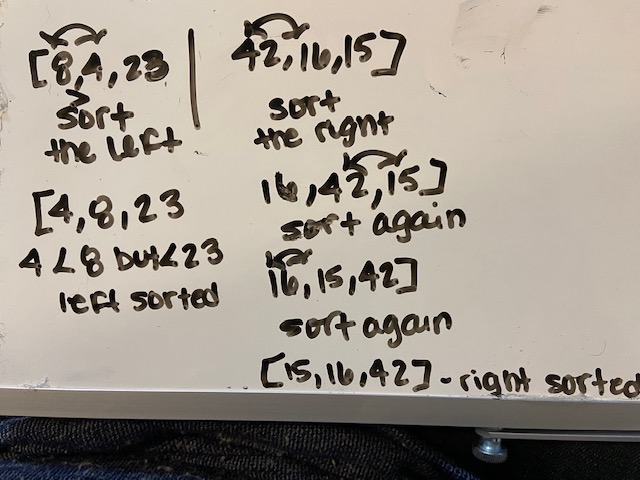 [8,4,23
sort
the left
[4,8,23
4<8 but<23
left sorted
42,16,15]
sort
the right
16,42,15]
sort again
16,15,42]
sort again
[15,16,42] - right sorted